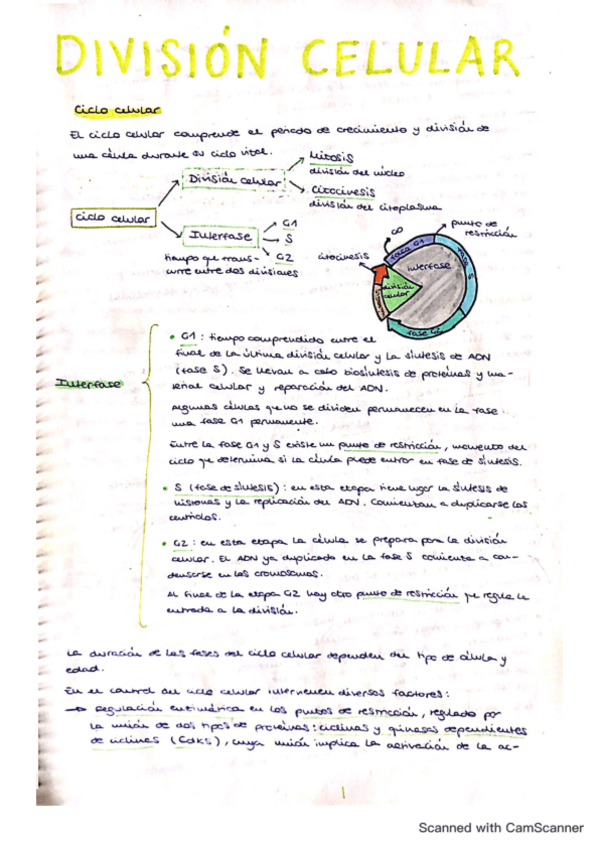 DIVISIÓN CELULAR
Ciclo celular
El ciclo celular comprende el periodo de crecimiento y división de
una célula durante su ciclo vital.
Mitosis
división del núcleo
División celular
Citocinesis
división del citoplasma
Ciclo celular
Interfase
G1
S
G2
tiempo que trans-
curre entre dos divisiones
citocinesis
G0
punto de
restricción
fase G1
fase S
interfase
división
celular
fase G2
Interfase
• G1 : tiempo comprendido entre el
final de la última división celular y la síntesis de ADN
(fase S). Se llevan a cabo biosíntesis de proteínas y ma-
terial celular y reparación del ADN.
Algunas células que no se dividen permanecen en la fase
una fase G1 permanente.
Entre la fase G1 y S existe un punto de restricción, momento del
ciclo que determina si la célula puede entrar en fase de síntesis.
• S (fase de síntesis) : en esta etapa tiene lugar la síntesis de
histonas y la replicación del ADN. Comienzan a duplicarse los
centriolos.
• G2 : en esta etapa la célula se prepara para la división
celular. El ADN ya duplicado en la fase S comienza a con-
densarse en los cromosomas.
Al final de la etapa G2 hay otro punto de restricción que regula la
entrada a la división.
La duración de las fases del ciclo celular dependen del tipo de célula y
edad.
En el control del ciclo celular intervienen diversos factores :
→ Regulación enzimática en los puntos de restricción, regulado por
la unión de dos tipos de proteínas : ciclinas y quinasas dependientes
de ciclinas (Cdks), cuya unión implica la activación de la ac-
1
Scanned with CamScanner